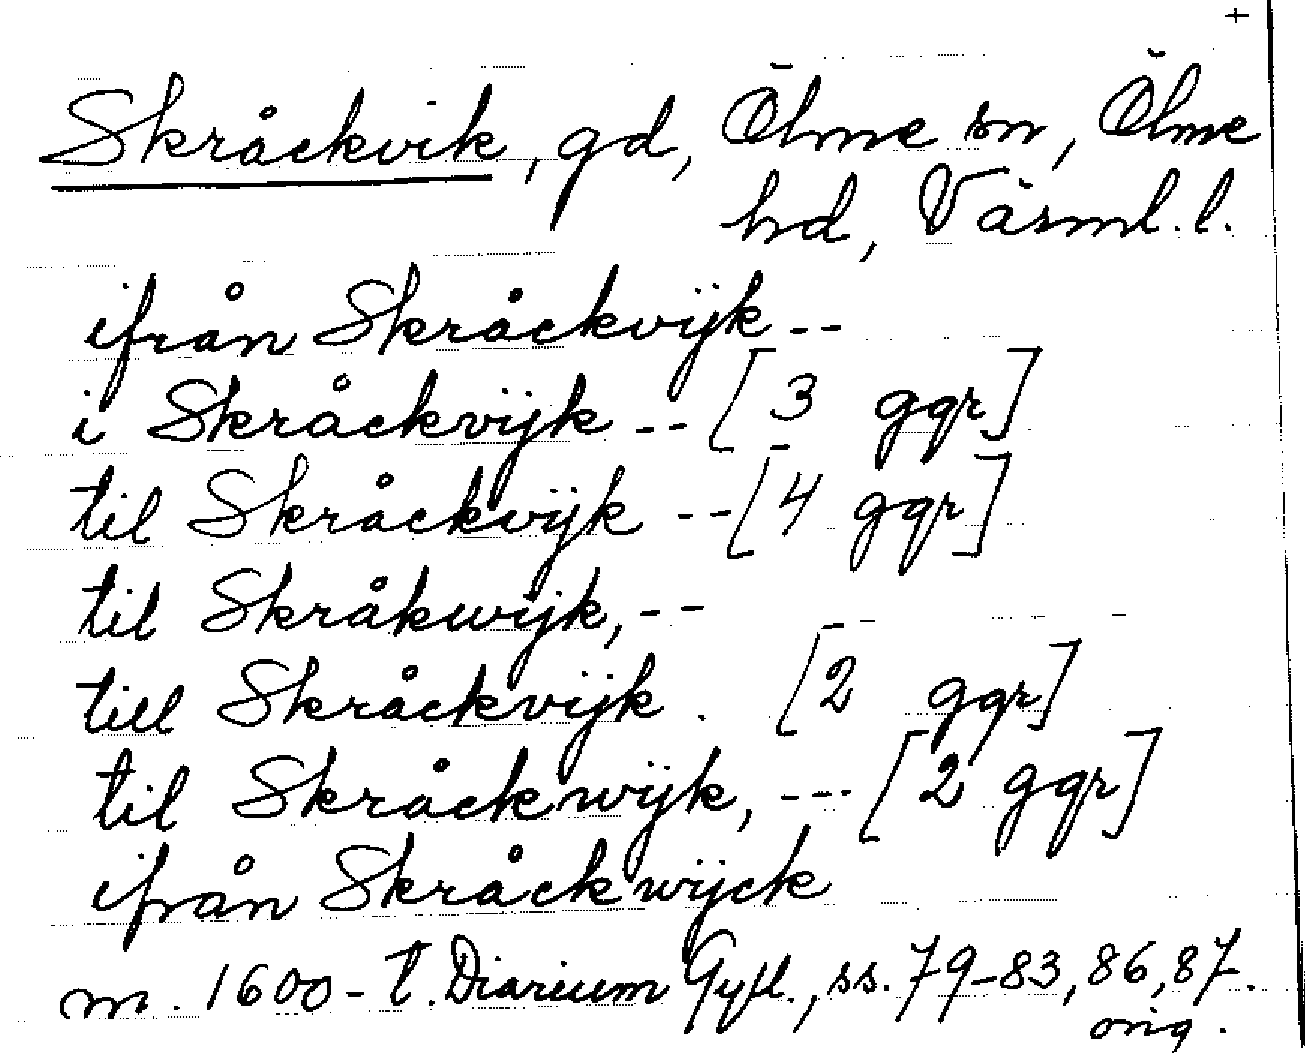 +
Skråckvik, gd, Ölme sn, Ölme
hd, Värml. l.
ifrån Skråckvijk --
i Skråckvijk -- [3 ggr]
til Skråckvijk -- [4 ggr]
til Skråkwijk, --
till Skråckvijk . [2 ggr]
til Skråckwijk, --- [2 ggr]
ifrån Skråckwijck
m. 1600-t. Diarium Gyll., ss. 79-83, 86, 87.
orig.